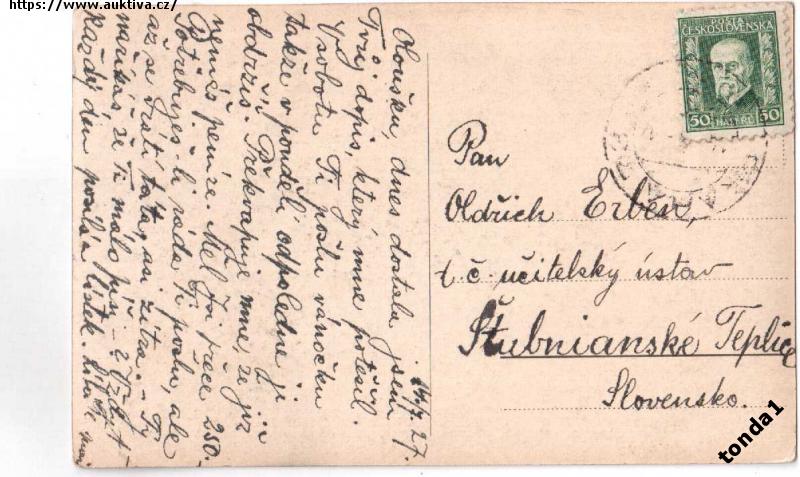 https://www.auktiva.cz/
POŠTA
ČESKOSLOVENSKÁ
50 HALÉŘŮ 50
Pan
Oldřich Erben,
t č. učitelský ústav
Štubnianské Teplice
Slovensko.
27.
Oloušku, dnes dostala jsem
Tvůj dopis, který mne potěšil.
V sobotu Ti pošlu vánočku
takže v pondělí odpoledne ji
obdržíš. Překvapuje mne, že již
nemáš peníze. Měl jsi přece 250.
Potřebuješ-li ráda Ti pošlu, ale
až se vrátí táta, asi zítra. – Ty
naříkáš že Ti málo píši –
každý den posílám lístek.
tonda1